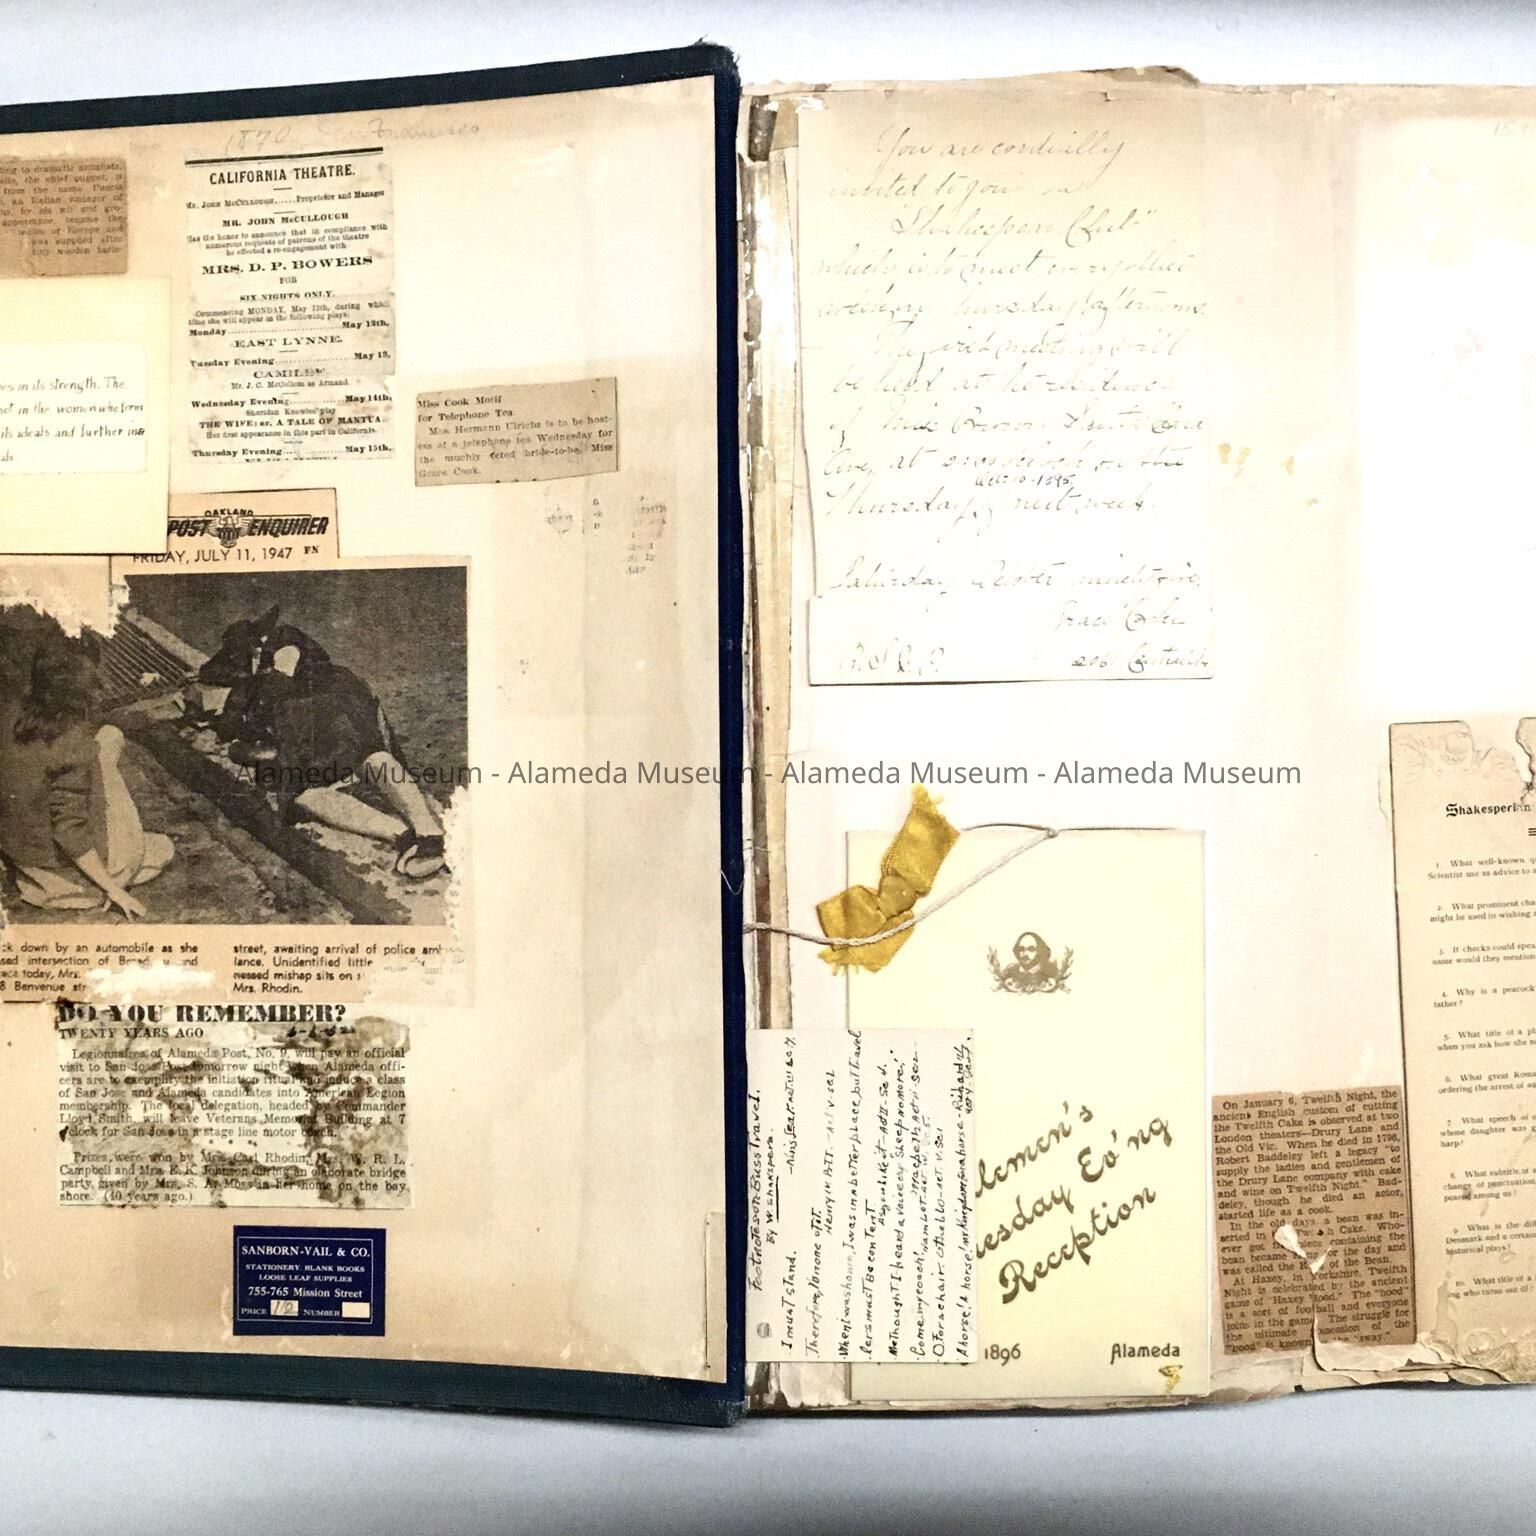 1870 San Francisco
ting to dramatic annalists,
the chief puppet, is
from the name Puscia
an Italian
by his wit and gro-
appearance, became the
of Europe and
was supplied after
tiny wooden
CALIFORNIA THEATRE.
Mr. JOHN McCULLOUGH......Proprietor and Manager
MR. JOHN McCULLOUGH
Has the honor to announce that in compliance with
numerous requests of patrons of the theatre
he effected a re-engagement with
MRS. D. P. BOWERS
FOR
SIX NIGHTS ONLY,
Commencing MONDAY, May 12th, during which
time she will appear in the following plays:
Monday...............May 12th,
EAST LYNNE.
Tuesday Evening...............May 13,
CAMILLE.
Mr. J. C. McCollom as Armand.
Wednesday Evening...............May 14th,
Sheridan Knowles' play
THE WIFE; or, A TALE OF MANTUA.
Her first appearance in this part in California.
Thursday Evening...............May 15th,
es in its strength. The
not in the women who form
its ideals and further ing
Miss Cook Motif
for Telephone Tea
Mrs. Hermann Ulrichs is to be host-
ess at a telephone tea Wednesday for
the muchly feted bride-to-be, Miss
Grace Cook.
OAKLAND
POST ENQUIRER
FRIDAY, JULY 11, 1947 FN
ck down by an automobile as she
sed intersection of
today, Mrs.
8 Benvenue
street, awaiting arrival of police amb
lance. Unidentified little
nessed mishap sits on
Mrs. Rhodin.
DO YOU REMEMBER?
TWENTY YEARS AGO
Legionnaires of Alameda Post, No. 9, will pay an official
visit to San Jose Post tomorrow night when Alameda offi-
cers are to exemplify the initiation ritual and induce a class
of San Jose and Alameda candidates into American Legion
membership. The local delegation, headed by Commander
Lloyd Smith, will leave Veterans Memorial Building at 7
o'clock for San Jose in a stage line motor coach.
Prizes were won by Mrs. Carl Rhodin, Mrs. W. R. L.
Campbell and Mrs. E. K. Johnson during an elaborate bridge
party given by Mrs. S. A. Moss in her home on the bay
shore. (40 years ago.)
SANBORN-VAIL & CO.
STATIONERY. BLANK BOOKS
LOOSE LEAF SUPPLIES
755-765 Mission Street
PRICE NUMBER
You are cordially
invited to join a
"Shakespeare Club"
which is to meet every other
week on Thursday afternoons.
The first meeting will
be held at the residence
of Miss Santa Clara
Ave, at on the
Oct. 10-1895.
Thursday of next week.
Saturday, October ninety-five.
Grace
R.S.V.P.
Alameda Museum - Alameda Museum - Alameda Museum - Alameda Museum
Footnotes on Buss Travel.
By W. Shakspera.
I must stand.
Therefore, I'll none of it.
Henry IV
When I was home, I was in a better place, but travel
lers must be content
As you like it - Act II - Sc 4.
Methought I heard a voice cry Sleep no more!
Macbeth Act II - Sc 2
Come my coach! Hamlet - Act IV, Sc 5.
O for a chair. Othello - Act V. Sc 1
A horse! A horse! my Kingdom for a horse - Richard III
Act V
lemen's
uesday Ev'ng
Reception
1896
Alameda
On January 6, Twelfth Night, the
ancient English custom of cutting
the Twelfth Cake is observed at two
London theaters—Drury Lane and
the Old Vic. When he died in 1796,
Robert Baddeley left a legacy "to
supply the ladies and gentlemen of
the Drury Lane company with cake
and wine on Twelfth Night." Bad-
deley, though he died an actor,
started life as a cook.
In the old days a bean was in-
serted in Twelfth Cake. Who-
ever got the piece containing the
bean became King for the day and
was called the King of the Bean.
At Haxey, in Yorkshire, Twelfth
Night is celebrated by the ancient
game of "Haxey Hood." The "hood"
is a sort of football and everyone
joins in the game. The struggle for
the ultimate possession of the
"hood" is known as the "sway."
Shakesperian
1. What well-known
Scientist use as advice to a
2. What prominent cha
might be used in wishing a
3. If checks could spea
name would they mention
4. Why is a peacock
father?
5. What title of a pl
when you ask how she
6. What great Roma
ordering the arrest of a
7. What speech of
whose daughter was
harp?
8. What subtitle of a
change of punctuation,
peared among us?
9. What is the diff
Denmark and a certain
historical plays?
10. What title of a
ing who turns out